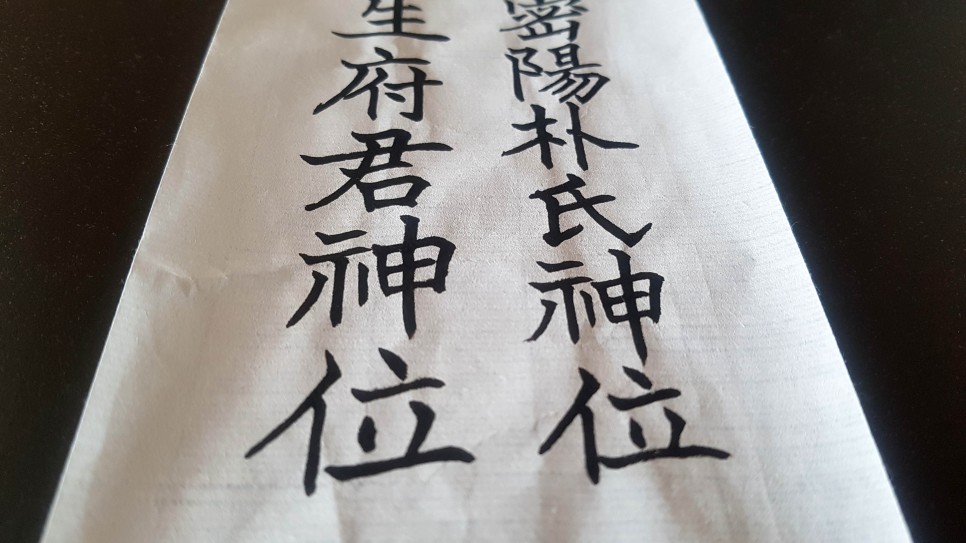 密陽朴氏神位
生府君神位